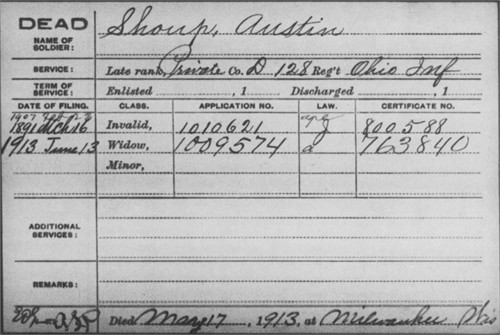 DEAD
NAME OF SOLDIER: Shoup, Austin
SERVICE: Late rank, Private Co. D 128 Reg't Ohio Inf
TERM OF SERVICE: Enlisted , 1 Discharged , 1
DATE OF FILING. CLASS. APPLICATION NO. LAW. CERTIFICATE NO.
1907 Feb
1891 Mch 16 Invalid, 1010621 800588
1913 June 13 Widow, 1009574 a 763840
Minor,
ADDITIONAL SERVICES:
REMARKS:
Died May 17, 1913, at Milwaukee Wis